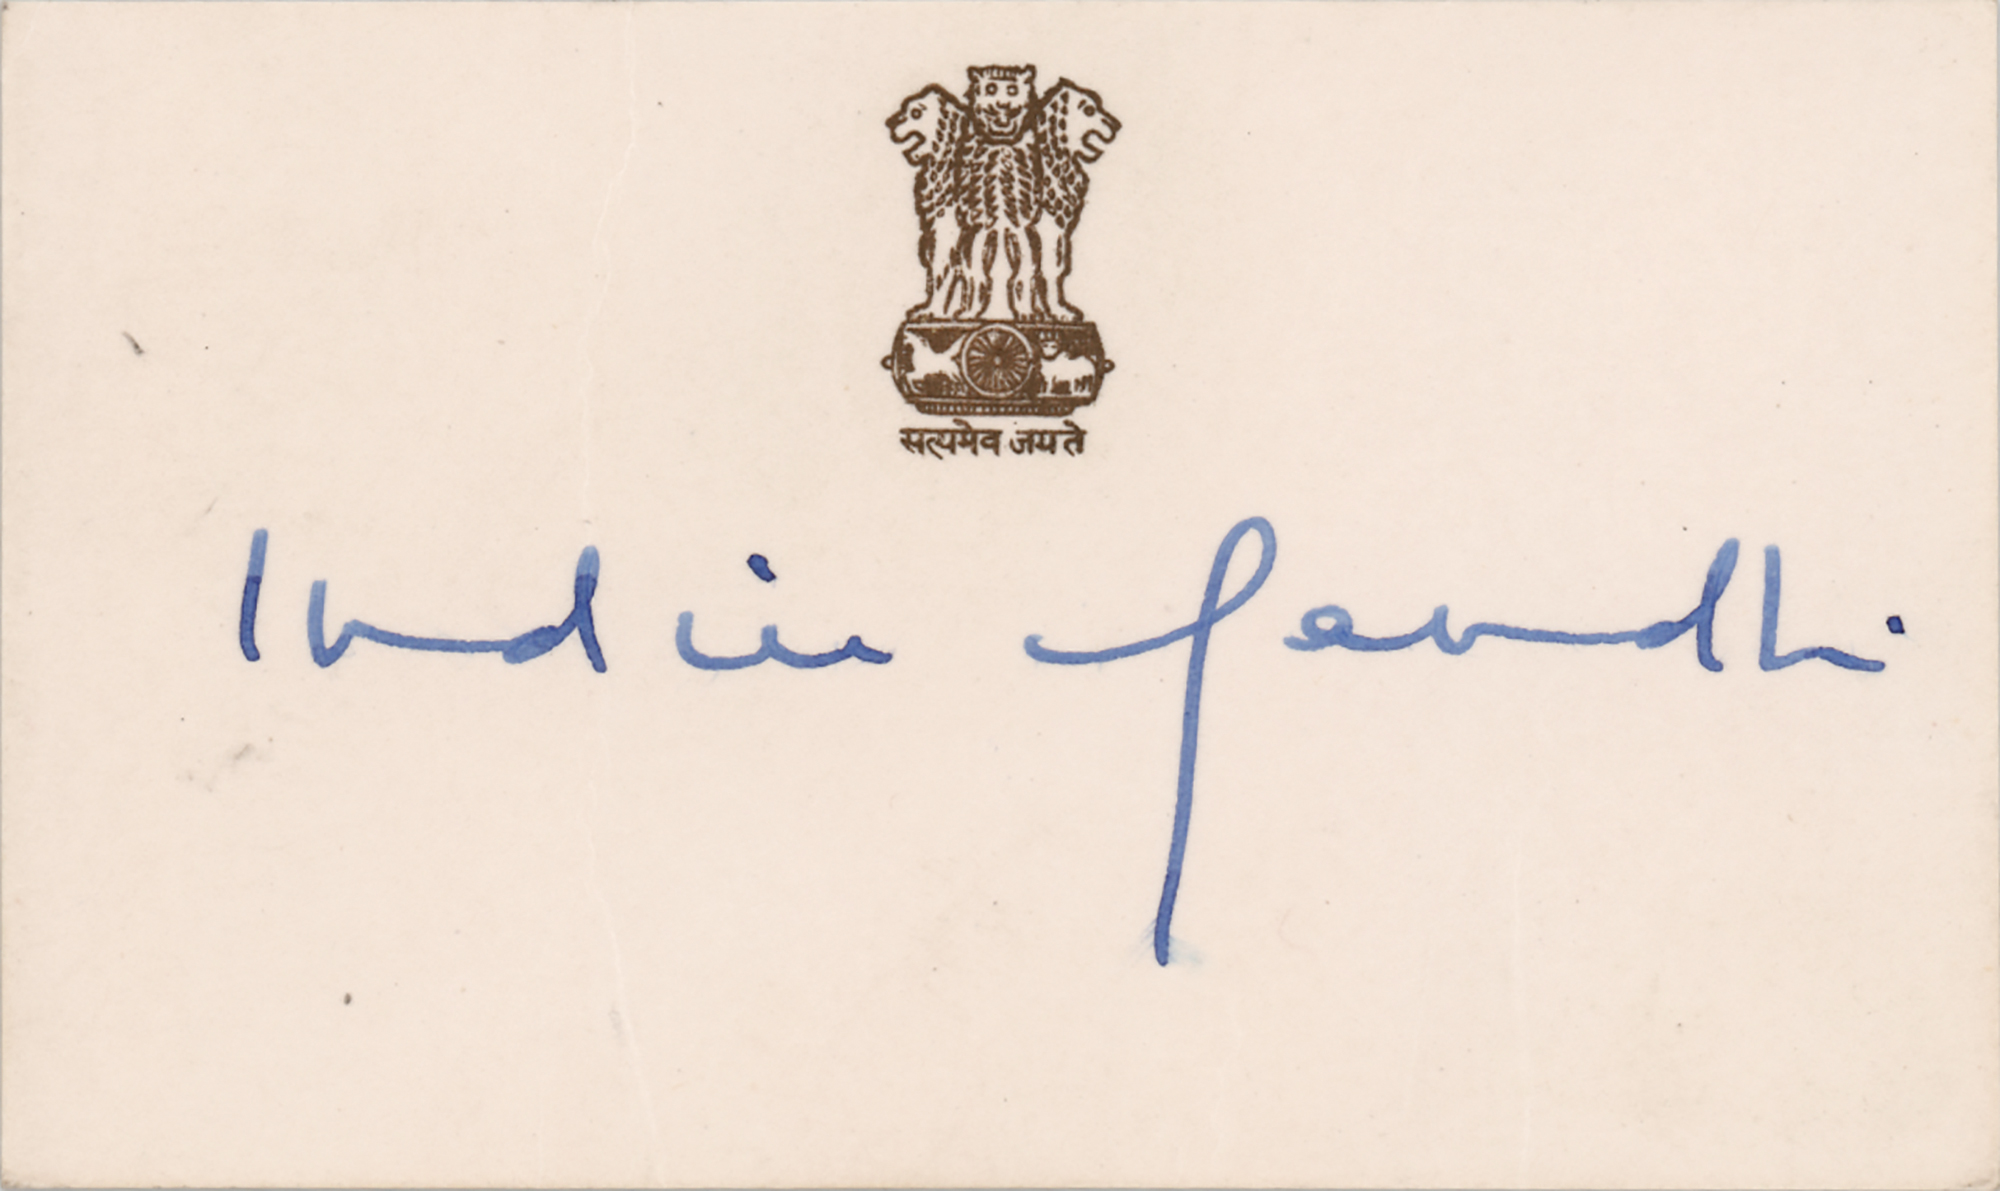 सत्यमेव जयते
Indira Gandhi